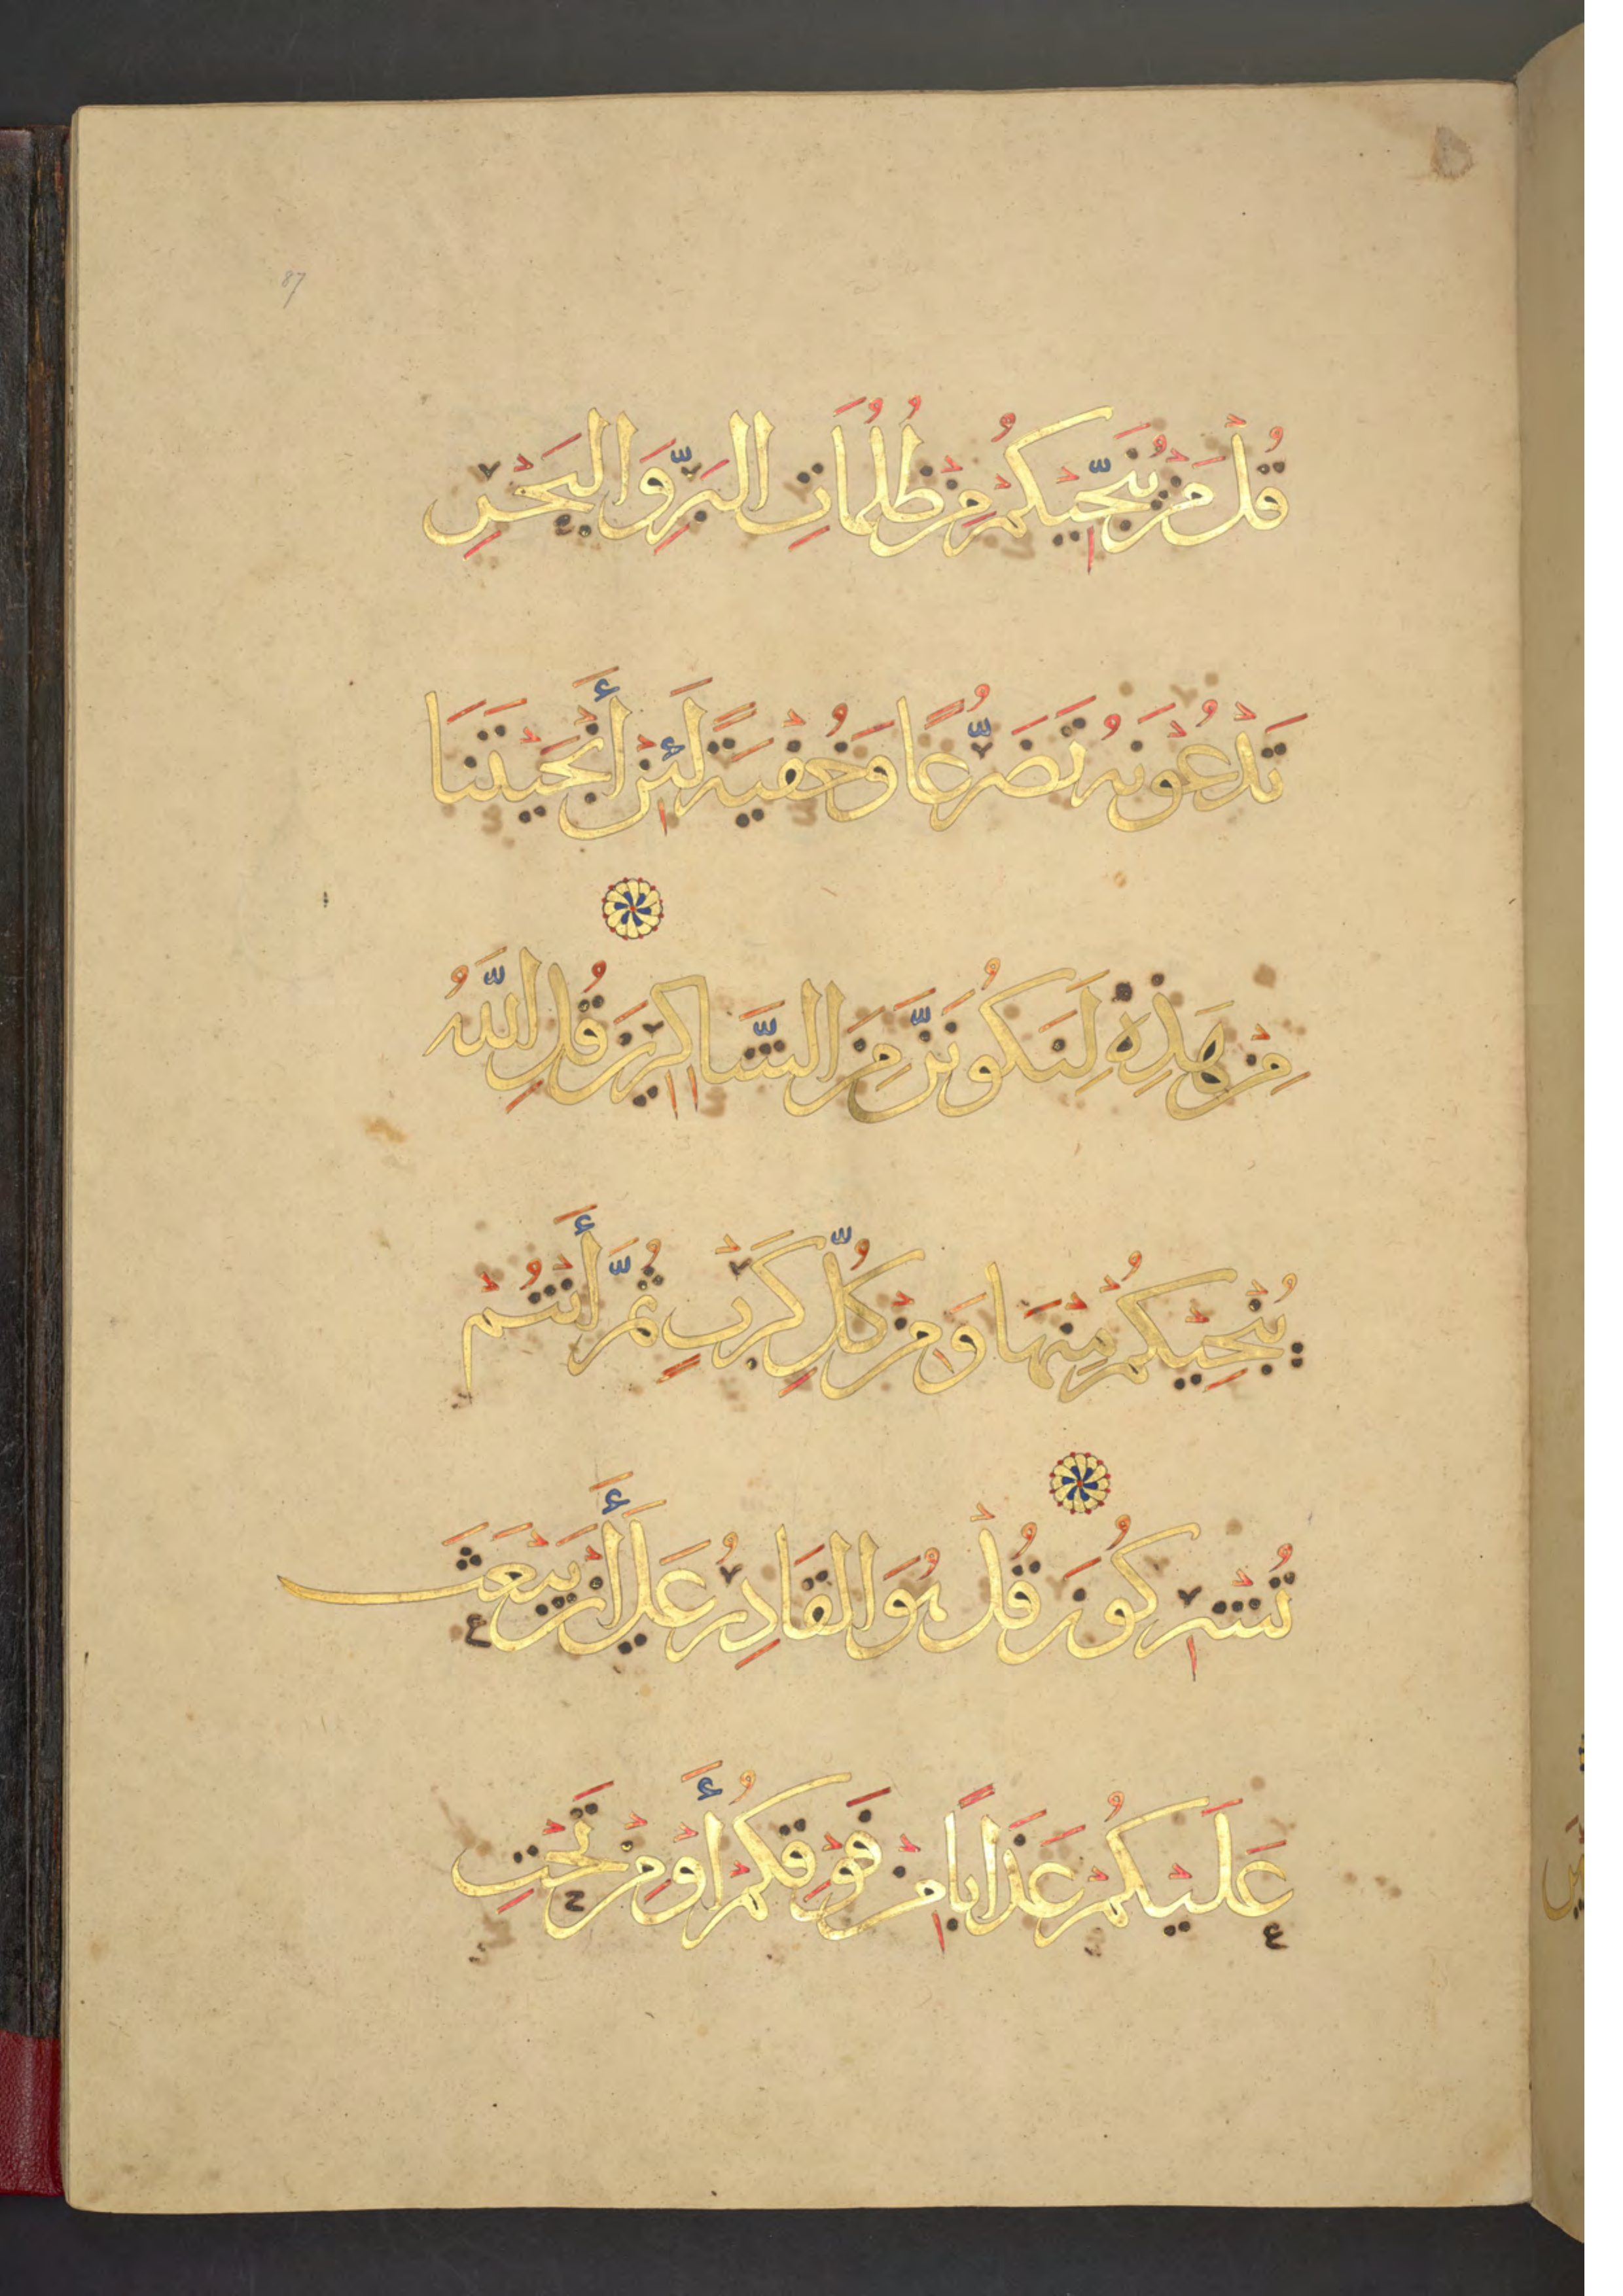 87
قُلْ مَنْ يُنَجِّيْكُمْ مِنْ ظُلُمَاتِ الْبَرِّ وَالْبَحْرِ
تَدْعُوْنَهُ تَضَرُّعًا وَخُفْيَةً لَئِنْ أَنْجَيْتَنَا
مِنْ هَذِهِ لَنَكُونَنَّ مِنَ الشَّاكِرِيْنَ قُلِ اللَّهُ
يُنْجِيْكُمْ مِنْهَا وَمِنْ كُلِّ كَرْبٍ ثُمَّ أَنْتُمْ
تُشْرِكُونَ قُلْ هُوَ الْقَادِرُ عَلَى أَنْ يَبْعَثَ
عَلَيْكُمْ عَذَابًا مِنْ فَوْقِكُمْ أَوْ مِنْ تَحْتِ